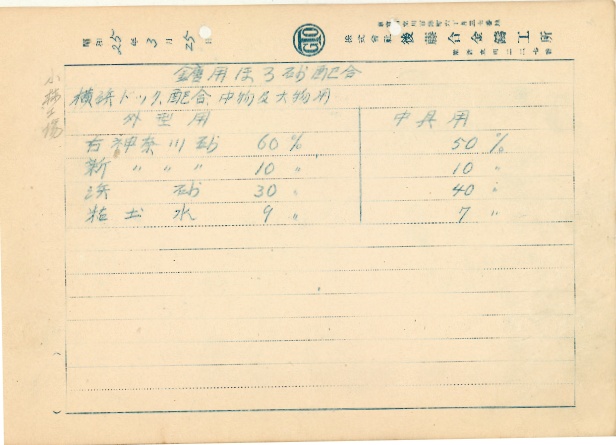 昭和 25 年 3 月 25 日
GTO
株式會社 後藤合金鑄工所
小柿工場
用ほろ砂配合
横浜ドック配合 中物及大物用
外型用 中具用
古神奈川砂 60% 50%
新 〃 〃 〃 10 〃 10 〃
浜 砂 30 〃 40 〃
粘土水 9 〃 7 〃